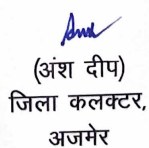 (अंश दीप)
जिला कलक्टर,
अजमेर